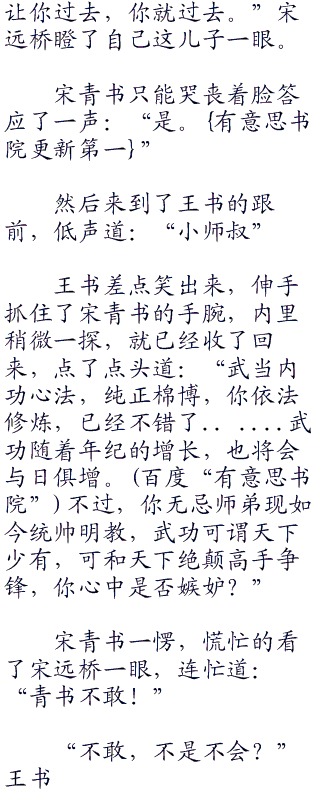 让你过去，你就过去。”宋
远桥瞪了自己这儿子一眼。
宋青书只能哭丧着脸答
应了一声：“是。{有意思书
院更新第一}”
然后来到了王书的跟
前，低声道：“小师叔”
王书差点笑出来，伸手
抓住了宋青书的手腕，内里
稍微一探，就已经收了回
来，点了点头道：“武当内
功心法，纯正棉博，你依法
修炼，已经不错了.. ......武
功随着年纪的增长，也将会
与日俱增。(百度“有意思书
院”)不过，你无忌师弟现如
今统帅明教，武功可谓天下
少有，可和天下绝颠高手争
锋，你心中是否嫉妒？”
宋青书一愣，慌忙的看
了宋远桥一眼，连忙道：
“青书不敢！”
“不敢，不是不会？”
王书